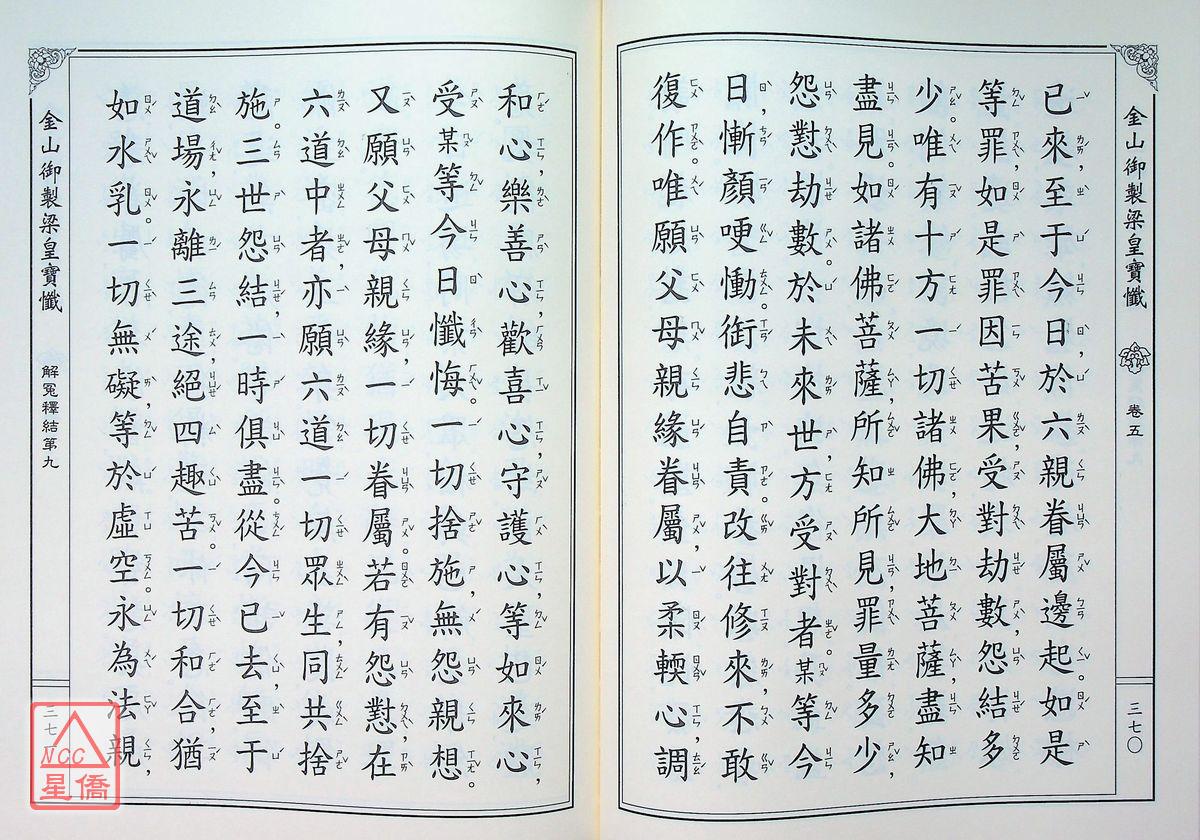 金山御製梁皇寶懺 卷五 三七〇
已來，至于今日，於六親眷屬邊起。如是
等罪，如是罪因苦果，受對劫數，怨結多
少。唯有十方一切諸佛，大地菩薩，盡知
盡見。如諸佛菩薩，所知所見，罪量多少，
怨懟劫數。於未來世，方受對者。某等今
日，慚顏哽慟。銜悲自責。改往修來，不敢
復作。唯願父母親緣眷屬，以柔輭心，調
和心，樂善心，歡喜心，守護心，等如來心，
受某等今日懺悔。一切捨施，無怨親想。
又願父母親緣，一切眷屬。若有怨懟，在
六道中者，亦願六道一切眾生，同共捨
施。三世怨結，一時俱盡。從今已去，至于
道場，永離三途，絕四趣苦。一切和合，猶
如水乳。一切無礙，等於虛空。永為法親，
金山御製梁皇寶懺 解冤釋結第九 三七
NCC
星僑